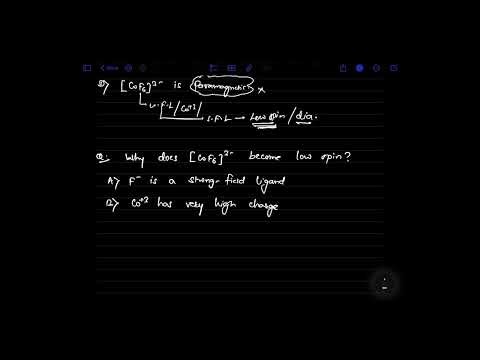 S) [CoF6]3- is Paramagnetic x
W.F.L/Co+3/
S.F.L → Low spin / dia.
Q. Why does [CoF6]3- become low spin?
A) F- is a strong-field ligand
B) Co+3 has very high charge